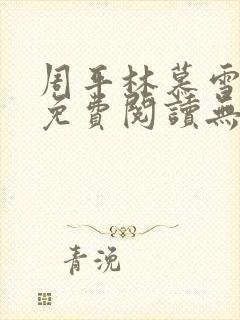 周平林慕雪
免費閱讀無
青浼